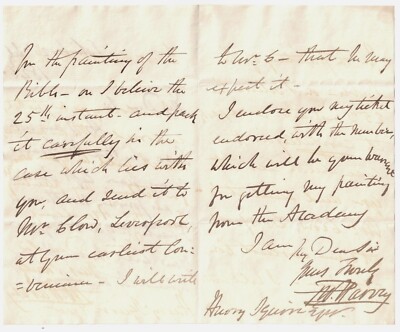 for the painting of the
Bible - on I believe the
25th instant - and pack
it carefully in the
case which lies with
you, and send it to
Mr Clow, Liverpool,
at your earliest Con-
=venience - I will write
to Mr C - that he may
expect it -
I enclose you my ticket
endorsed, with the number,
which will be your warrant
for getting my painting
from the Academy
I am
My Dear Sir
Yours Truly
Harvey